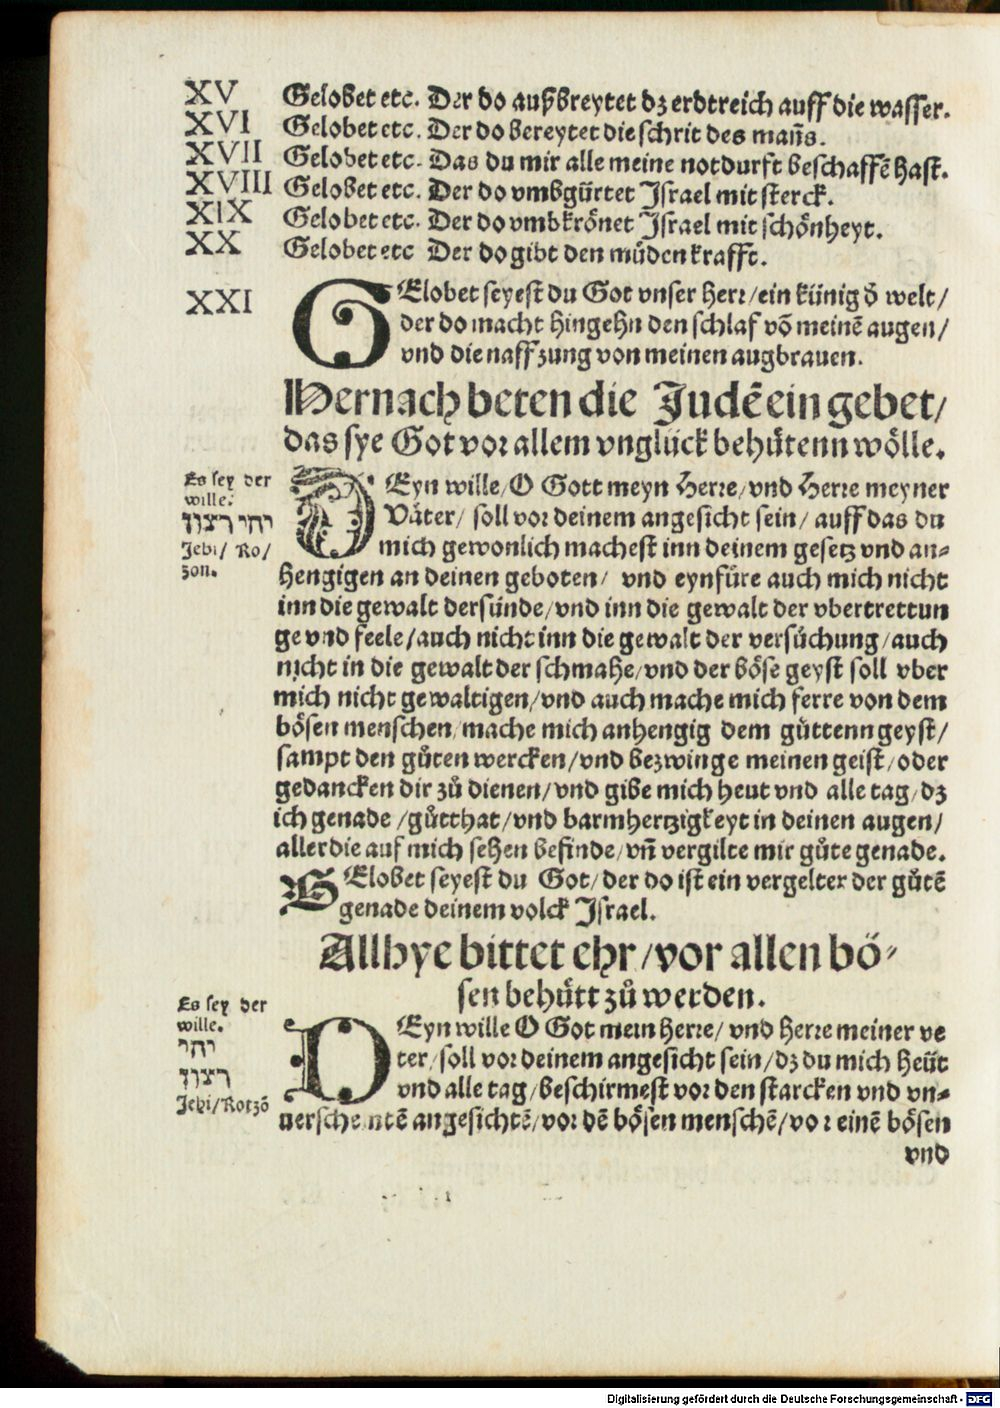 XV Gelobet etc. Der do außbreytet dz erdtreich auff die wasser.
XVI Gelobet etc. Der do bereytet die schrit des mañs.
XVII Gelobet etc. Das du mir alle meine notdurft beschaffē hast.
XVIII Gelobet etc. Der do vmbgürtet Israel mit sterck.
XIX Gelobet etc. Der do vmbkrönet Israel mit schönheyt.
XX Gelobet etc Der do gibt den müden krafft.
XXI GElobet seyest du Got vnser herr/ein künig d̄ welt/
der do macht hingehn den schlaf vō meinē augen/
vnd die naffzung von meinen augbrauen.
Hernach beten die Judē ein gebet/
das sye Got vor allem vnglück behütenn wölle.
Es sey der
wille.
יהי רצון
Jehi/ Ro/
zon.
DEyn wille/O Gott meyn Herre/vnd Herre meyner
Väter/ soll vor deinem angesicht sein/ auff das du
mich gewonlich machest inn deinem gesetz vnd an-
hengigen an deinen geboten/ vnd eynfüre auch mich nicht
inn die gewalt der sünde/vnd inn die gewalt der vbertrettun
ge vnd feele/auch nicht inn die gewalt der versůchung/auch
nicht in die gewalt der schmahe/vnd der böse geyst soll vber
mich nicht gewaltigen/vnd auch mache mich ferre von dem
bösen menschen/mache mich anhengig dem gůttenn geyst/
sampt den gůten wercken/vnd bezwinge meinen geist/oder
gedancken dir zů dienen/vnd gibe mich heut vnd alle tag/dz
ich genade /gůtthat/vnd barmhertzigkeyt in deinen augen/
aller die auf mich sehen befinde/vñ vergilte mir gůte genade.
GElobet seyest du Got/der do ist ein vergelter der gůtē
genade deinem volck Israel.
Allhye bittet ehr/vor allen bö-
sen behütt zů werden.
Es sey der
wille.
יהי
רצון
Jehi/Rotzō
DEyn wille O Got mein Herre/ vnd Herre meiner ve
ter/soll vor deinem angesicht sein/dz du mich heüt
vnd alle tag/beschirmest vor den starcken vnd vn-
uerschemtē angesichtē/vor dē bösen menschē/vor einē bösen
vnd
Digitalisierung gefördert durch die Deutsche Forschungsgemeinschaft - DFG